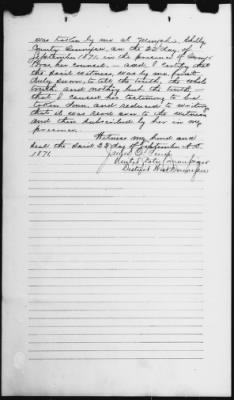 was taken by me at Memphis, Shelby
County Tennessee, on the 22d day of
September 1871, in the presence of
her counsel, and I certify that
the said witness, was by me first
duly sworn, to tell the truth, the whole
truth and nothing but the truth
that I caused her testimony to be
taken down and reduced to writing
that it was read over to the witness
and then subscribed by her in my
presence.
Witness my hand and
seal the said 22 day of September A.D.
1871.
United States Commissioner
District West Tennessee